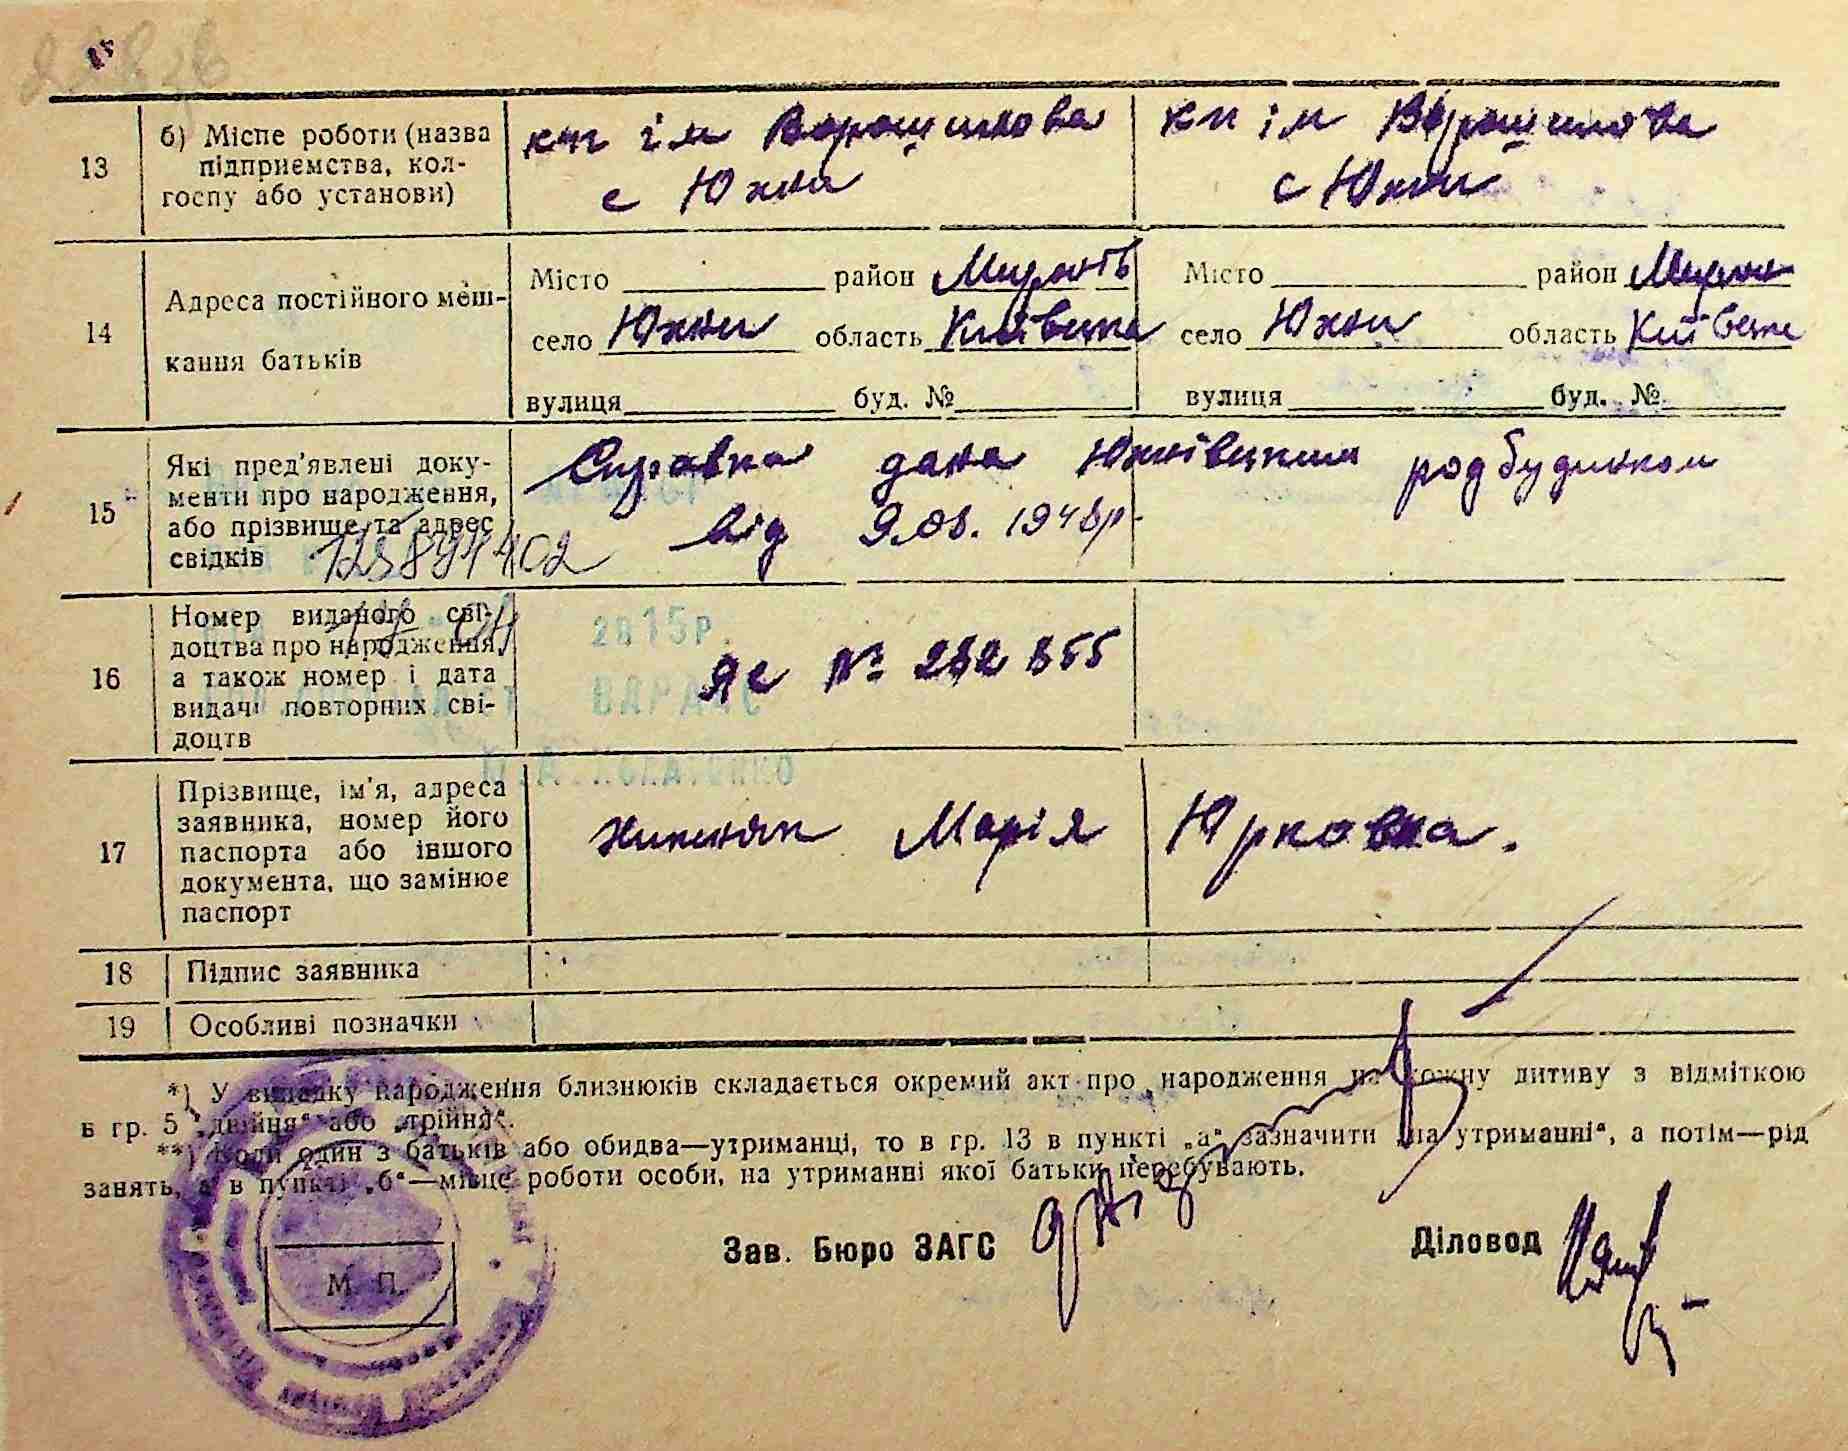 13
б) Місце роботи (назва
підприємства, кол-
госпу або установи)
кп ім Ворошилова
с Южни
кп ім Ворошилова
с Южни
14
Адреса постійного меш-
кання батьків
Місто район Миронів
село Южни область Київська
вулиця буд. №
Місто район Мирон
село Южни область Київська
вулиця буд. №
15
Які пред'явлені доку-
менти про народження,
або прізвище та адрес
свідків
Справка дана Южнівським родбудинком
від 9.08. 1948р.
16
Номер виданого сві-
доцтва про народження,
а також номер і дата
видачі повторних сві-
доцтв
2015р.
ЯЄ № 282855
17
Прізвище, ім'я, адреса
заявника, номер його
паспорта або іншого
документа, що замінює
паспорт
Марія Юрковна.
18
Підпис заявника
19
Особливі позначки
*) У випадку народження близнюків складається окремий акт про народження на кожну дитину з відміткою
в гр. 5 „двійня“ або „трійня“.
**) Коли один з батьків або обидва—утриманці, то в гр. 13 в пункті „а“ зазначити „на утриманні“, а потім—рід
занять, а в пункті „б“—місце роботи особи, на утриманні якої батьки перебувають.
Зав. Бюро ЗАГС
Діловод
М. П.